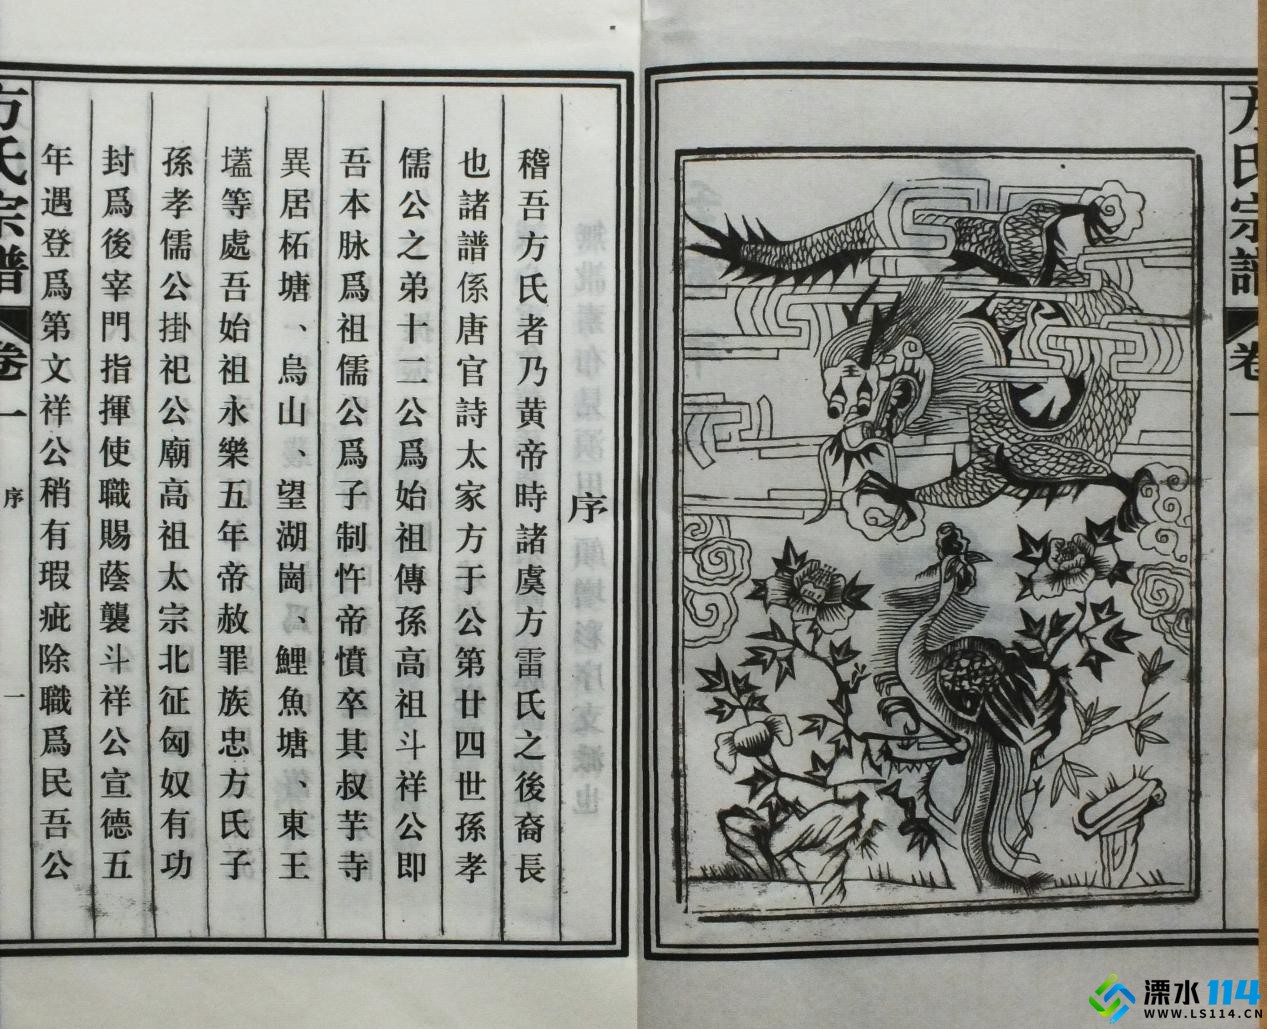 方氏宗譜
卷一
序
稽吾方氏者乃黄帝時諸虞方雷氏之後裔長
也諸譜係唐官詩太家方于公第廿四世孫孝
儒公之弟十二公爲始祖傳孫高祖斗祥公即
吾本脉爲祖儒公爲子制忤帝憤卒其叔芋寺
異居柘塘、烏山、望湖崗、鯉魚塘、東王
墻等處吾始祖永樂五年帝赦罪族忠方氏子
孫孝儒公掛祀公廟高祖太宗北征匈奴有功
封爲後宰門指揮使職賜蔭襲斗祥公宣德五
年遇登爲第文祥公稍有瑕疵除職爲民吾公
方氏宗譜
卷一
序
一
溧水114
WWW.LS114.CN